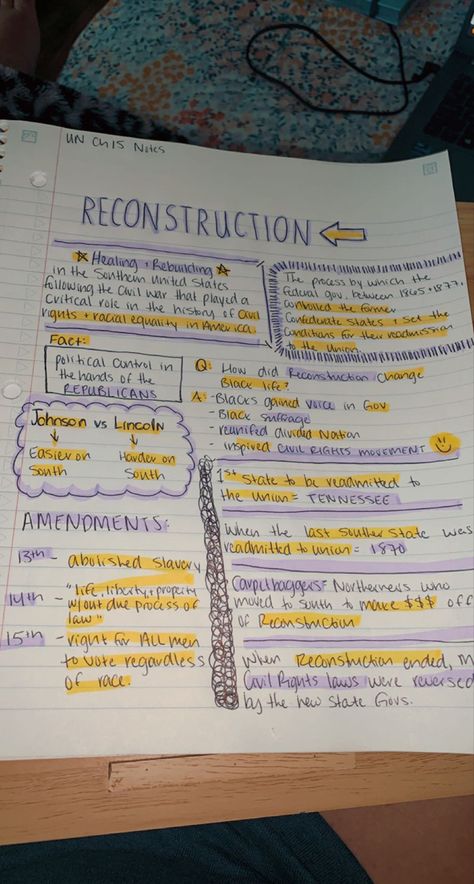 UN Ch15 Notes
RECONSTRUCTION
☆ Healing + Rebuilding ☆
in the Southern United States
following the Civil War that played a
critical role in the history of civil
rights + racial equality in America.
The process by which the
federal gov. between 1865 + 1877.
Controlled the former
Confederate States + Set the
Conditions for their readmission
to the Union.
Fact:
political control in
the hands of the
REPUBLICANS
Q: How did Reconstruction change
Black life?
A: -Blacks gained voice in Gov
-Black suffrage
-reunified divided Nation
- inspired CIVIL RIGHTS MOVEMENT
Johnson vs Lincoln
Easier on
South
Harder on
South
AMENDMENTS:
13th - abolished slavery
14th - "life, liberty, + property
w/out due process of
law"
15th - right for ALL men
to vote regardless
of race.
1st State to be readmitted to
the union = TENNESSEE
When the last souther State was
readmitted to union = 1870
Carpetbaggers= Northerners who
moved to south to make $$$ off
of Reconstruction
When Reconstruction ended, m
Civil Rights laws were reversed
by the new state Govs.